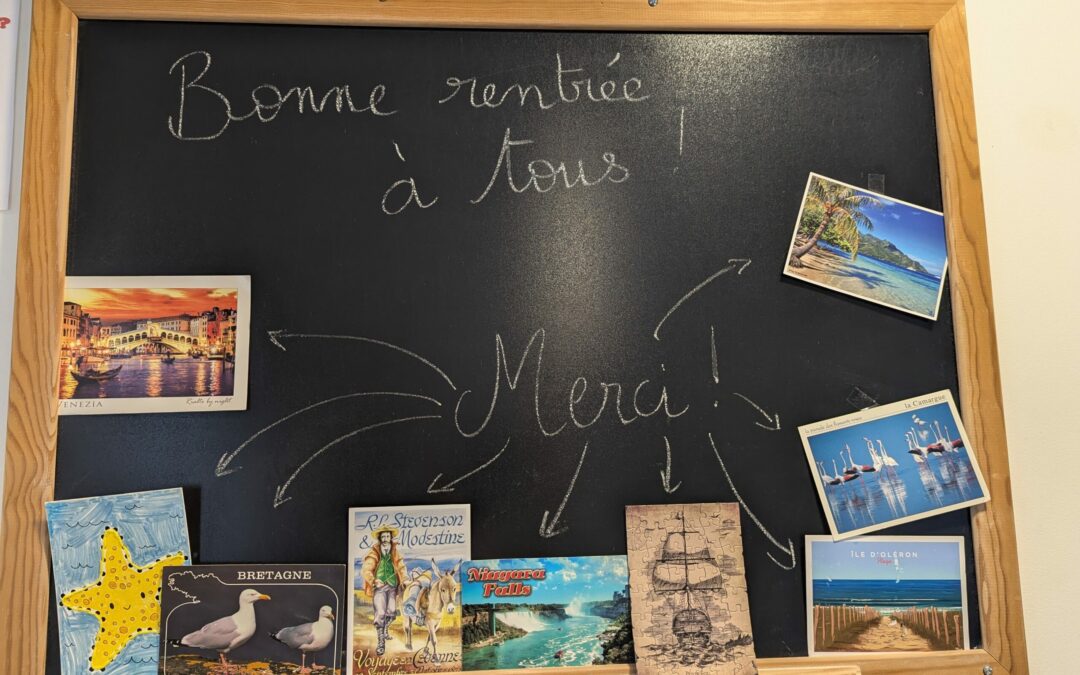 ?
Bonne rentrée
à tous !
Merci !
VENEZIA
Rialto by night
la Camargue
BRETAGNE
R.L. STEVENSON
& MODESTINE
Voyage en Cévennes
Niagara
Falls
ÎLE D'OLÉRON
Plage